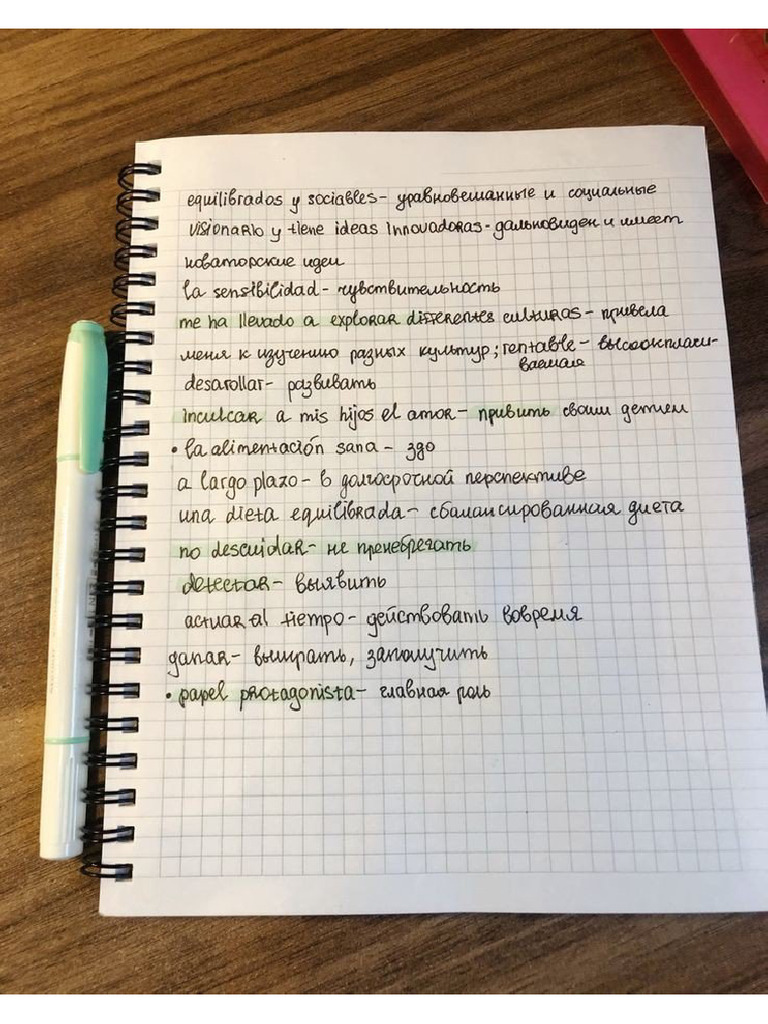 equilibrados y sociables- уравновешанные и социальные
visionario y tiene ideas innovadoras- дальновиден и имеет
новаторские идеи
la sensibilidad- чувствительность
me ha llevado a explorar differentes culturas- привела
меня к изучению разных культур; rentable- высокоплачи-
ваемая
desarollar- развивать
inculcar a mis hijos el amor- привить своим детям
• la alimentación sana- здо
a largo plazo- в долгосрочной перспективе
una dieta equilibrada- сбалансированная диета
no descuidar- не пренебрегать
detectar- выявить
actuar al tiempo- действовать вовремя
ganar- выиграть, заполучить
• papel protagonista- главная роль